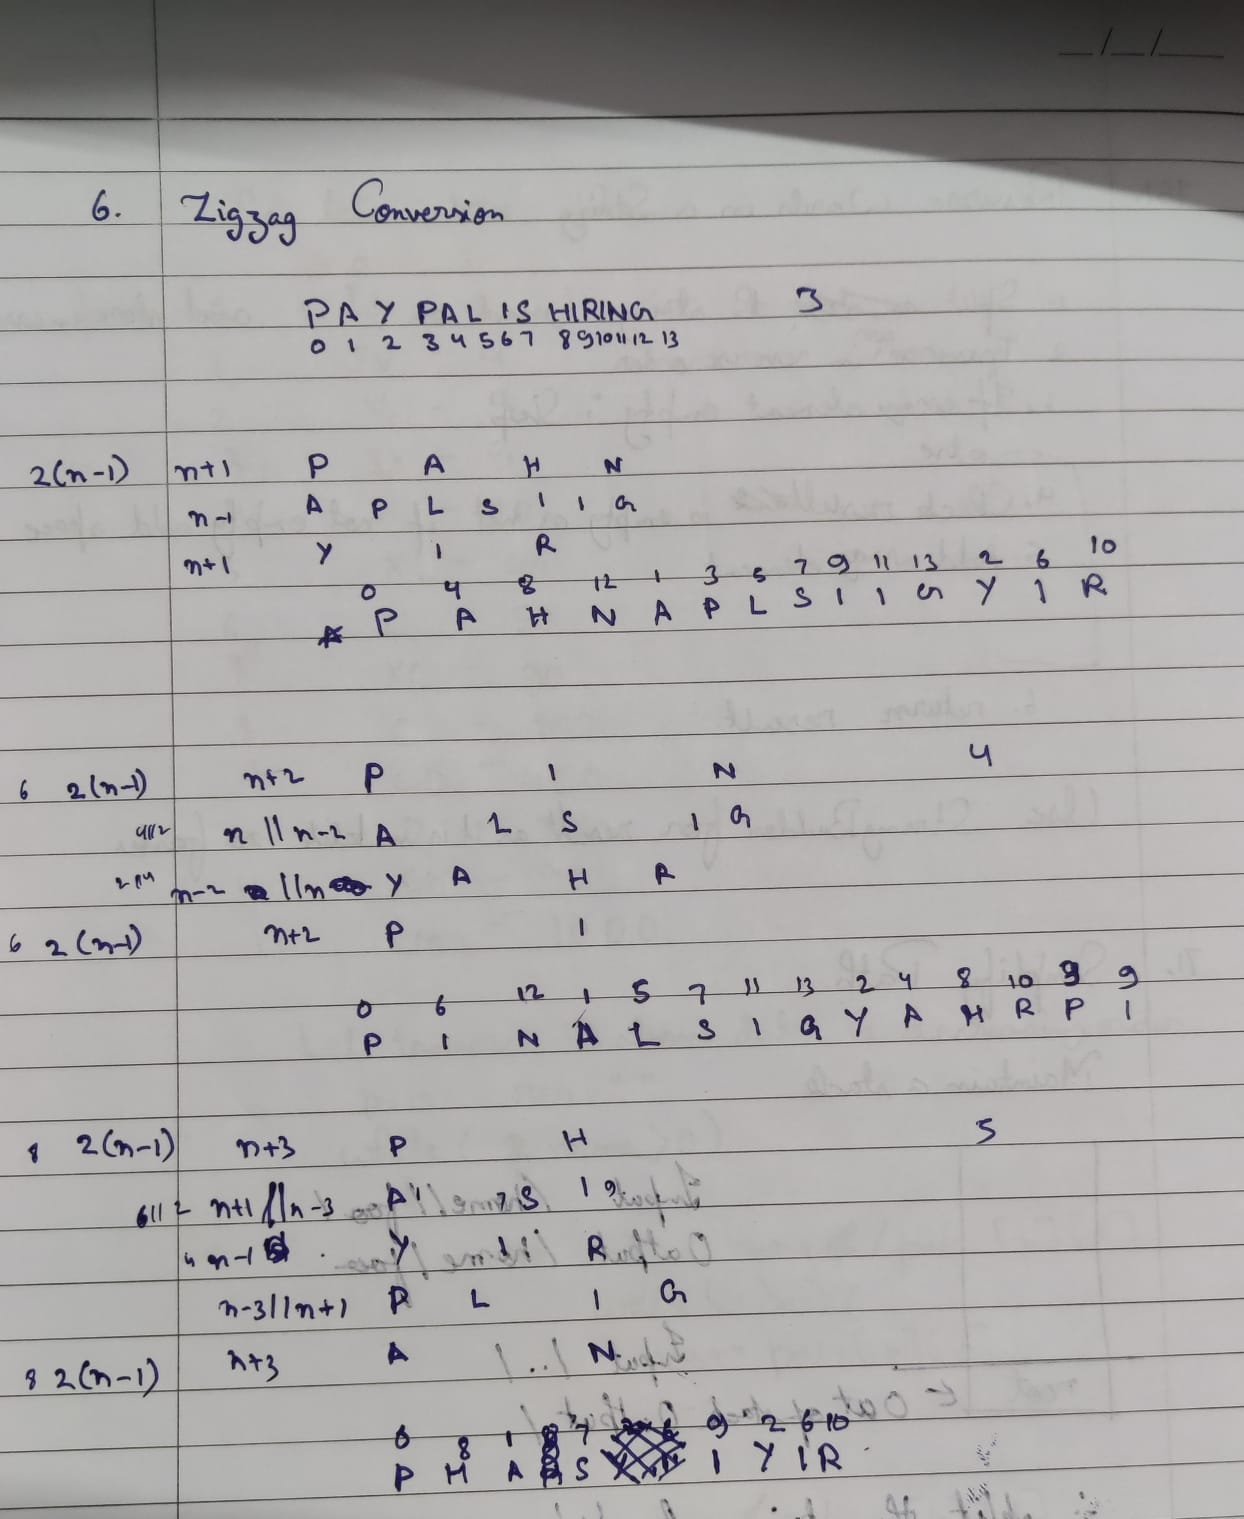 _/_/_
6. Zigzag Conversion
PAY PAL IS HIRING 3
0 1 2 3 4 5 6 7 8 9 10 11 12 13
2(n-1) n+1 P A H N
n-1 A P L S I I G
n+1 Y I R
0 4 8 12 1 3 5 7 9 11 13 2 6 10
P A H N A P L S I I G Y I R
4
6 2(n-1) n+2 P I N
4||2 n||n-2 A L S I G
2||4 n-2 ||n Y A H R
6 2(n-1) n+2 P I
0 6 12 1 5 7 11 13 2 4 8 10 9 9
P I N A L S I G Y A H R P I
8 2(n-1) n+3 P H 5
6||2 n+1||n-3 A 1 7 S I 9
4 n-1 Y I R
n-3||n+1 P L I G
8 2(n-1) n+3 A N
0 8 1 7 9 2 6 10
P H A S I Y I R